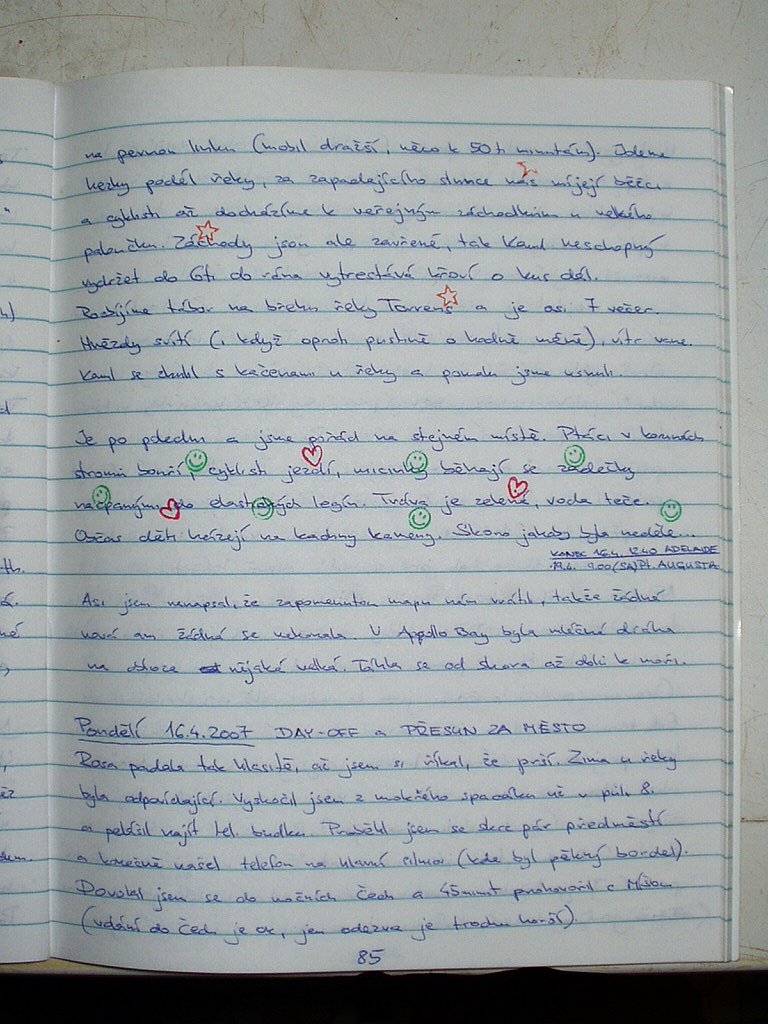 na pevnou linku (mobil dražší, něco k 50ti minutám). Jdeme
hezky podél řeky, za zapadajícího slunce nás míjejí běžci
a cyklisti až docházíme k veřejným záchodkům u velkého
paloučku. Záchody jsou ale zavřené, tak Kamil neschopný
vydržet do 6ti do rána vytrestává křoví o kus dál.
Rozbíjíme tábor na břehu řeky Torrens a je asi 7 večer.
Hvězdy svítí (i když oproti pustině o hodně méně), vítr vane.
Kamil se zkulil s kačenami u řeky a pomalu jsme usnuli.
Je po poledni a jsme pořád na stejném místě. Ptáci v korunách
stromů bončí, cyklisti jezdí, micinky běhají se zadečky
nacpanými do elastických legín. Tráva je zelená, voda teče.
Občas děti házejí na kachny kameny. Skoro jakoby byla neděle...
KONEC 16.4. 12:40 ADELAIDE
19.4. 9:00 (SA) Pt. AUGUSTA
Asi jsem nenapsal, že zapomenutou mapu nám vrátil, takže žádná
nová ani žádná se nekonala. V Appollo Bay byla mléčná dráha
na obloze nějaká velká. Táhla se od shora až dolů k moři.
Pondělí 16.4.2007 DAY-OFF a PŘESUN ZA MĚSTO
Rosa padala tak hlasitě, až jsem si říkal, že prší. Zima u řeky
byla odpovídající. Vyskočil jsem z mokřého spacáku už v půl 8.
a běžil najít tel. budku. Proběhl jsem se skrz pár předměstí
a konečně našel telefon na hlavní silnici (kde byl pěkný bordel).
Dovolal jsem se do nočních Čech a 45minut prohovořil s Míšou
(volání do Čech je ok, jen odezva je trochu horší).
85